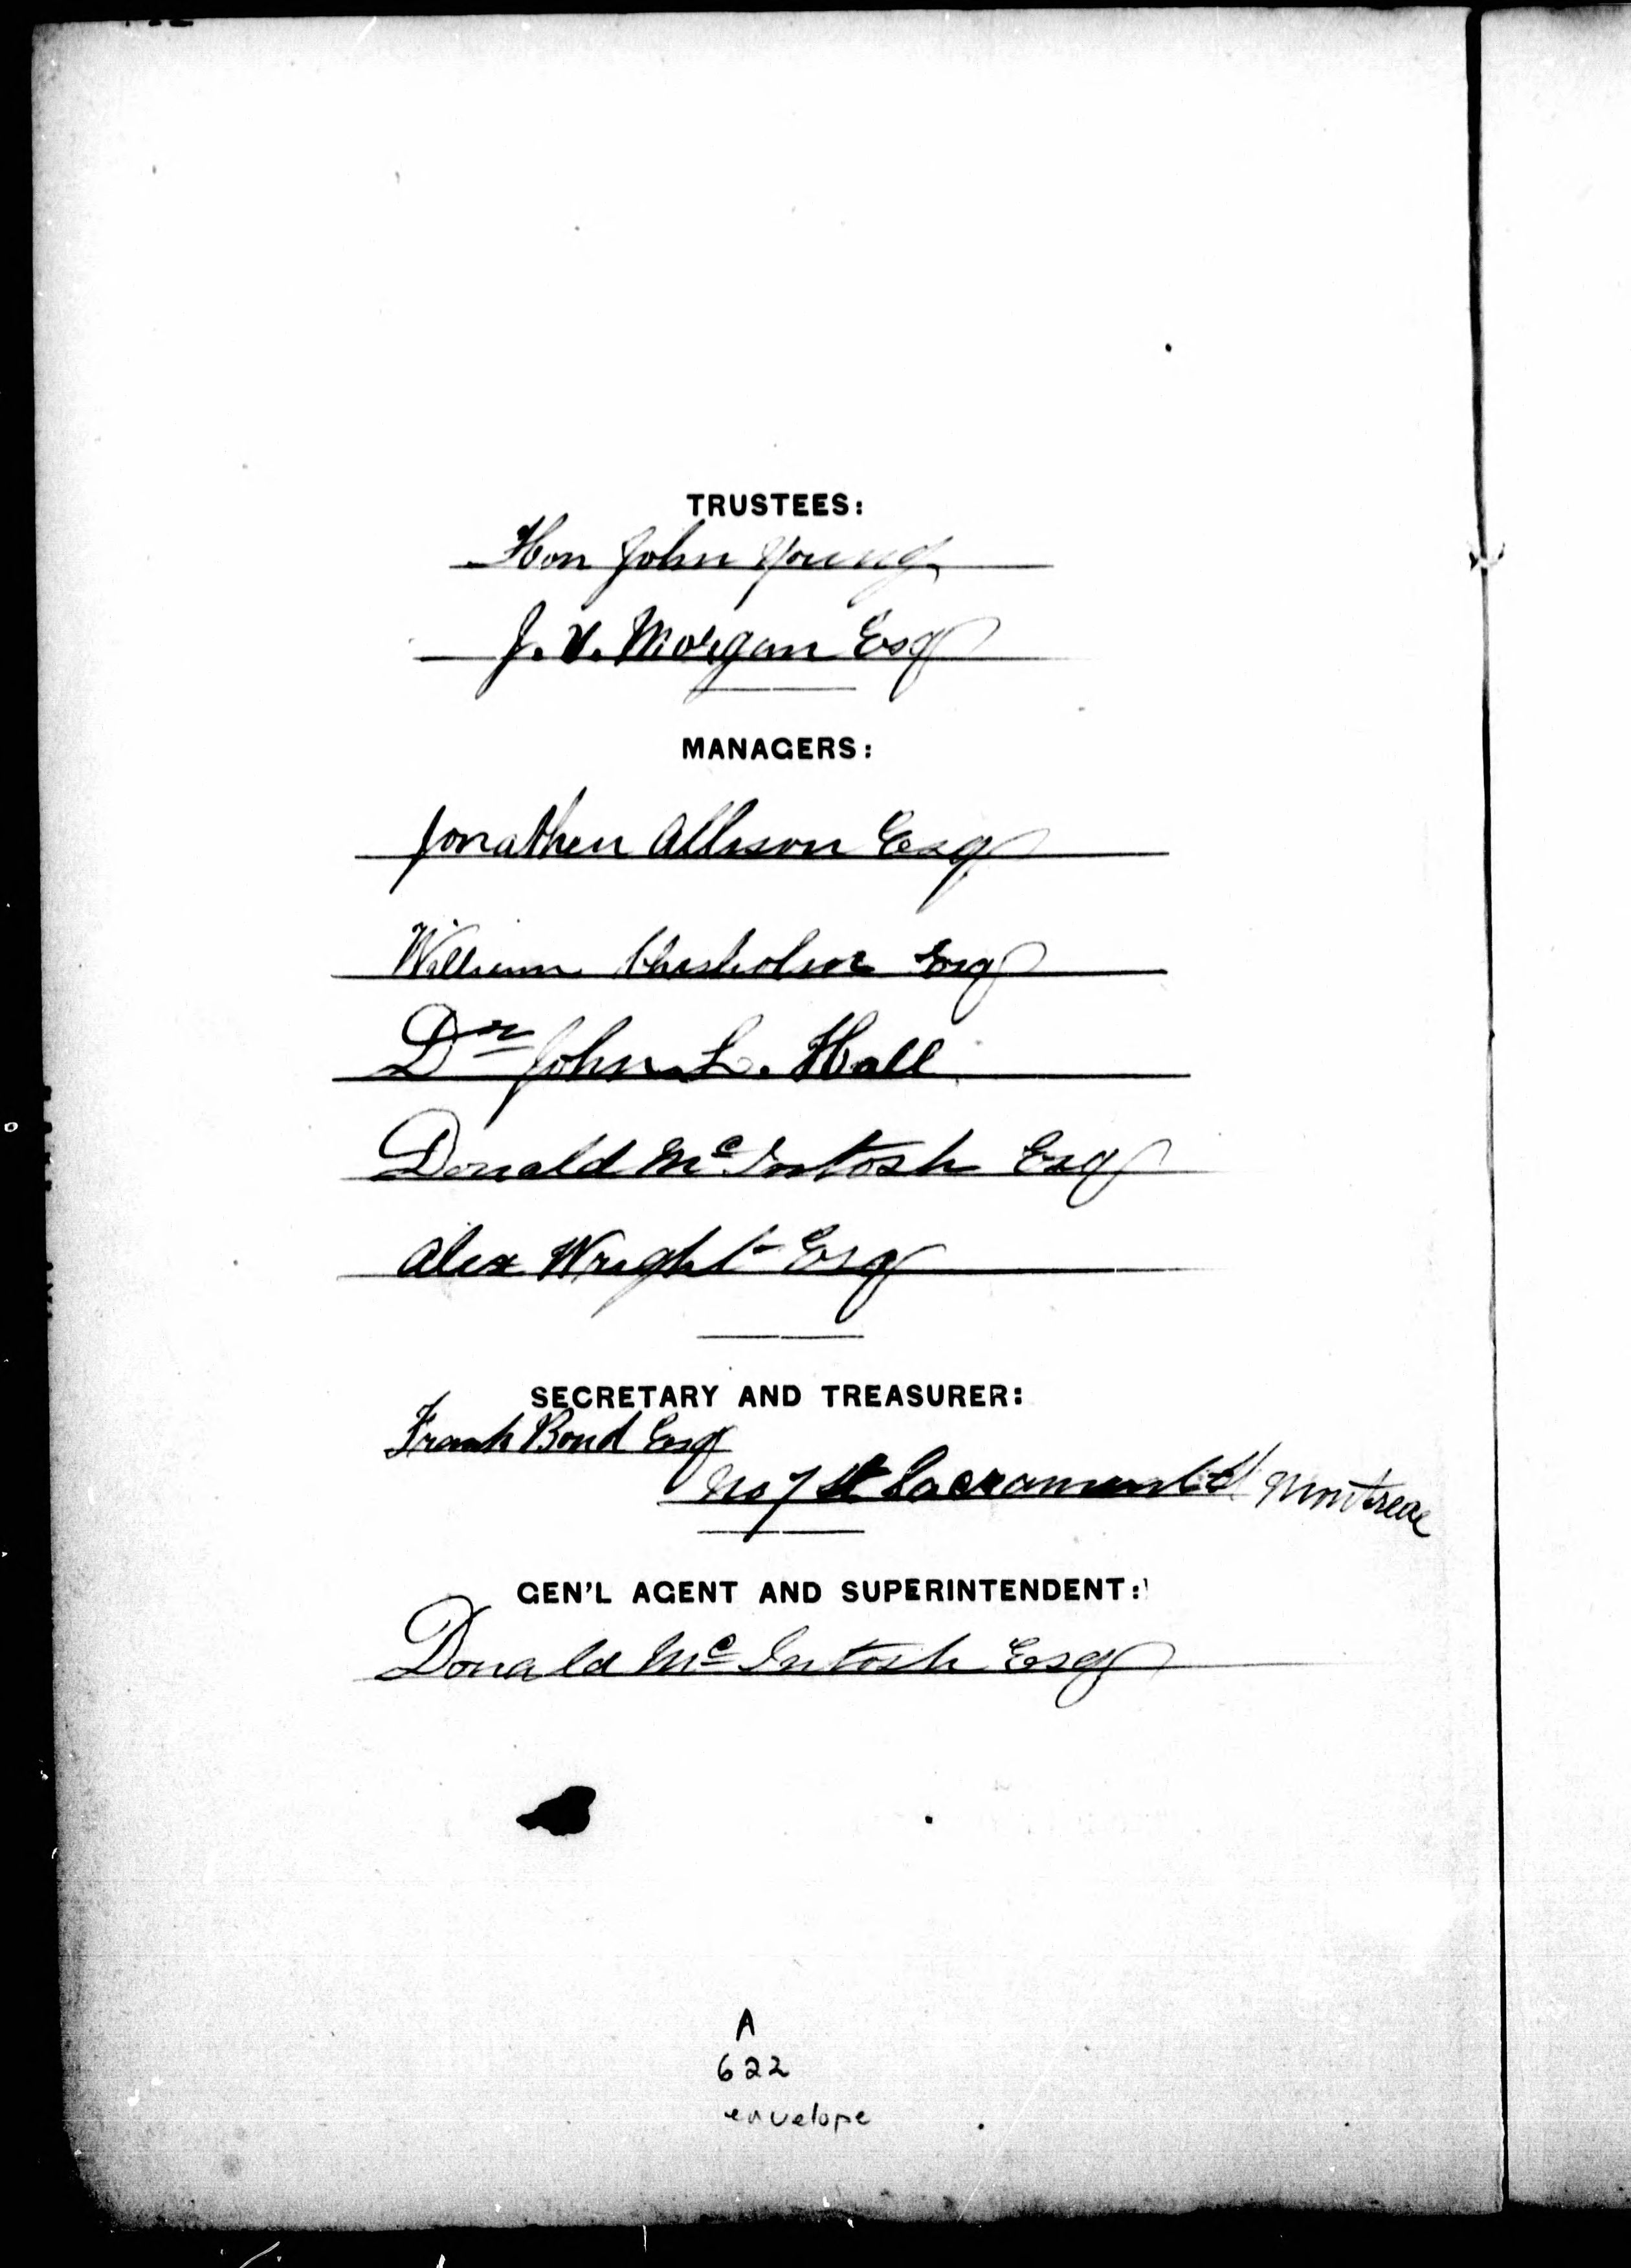 TRUSTEES:
Hon John Young
J. V. Morgan Esq
MANAGERS:
Jonathen Allison Esq
William Chisholm Esq
Dr John L. Hall
Donald Mc Intosh Esq
Alex Wright Esq
SECRETARY AND TREASURER:
Frank Bond Esq
No 7 St Sacrament St Montreal
GEN'L AGENT AND SUPERINTENDENT:
Donald Mc Intosh Esq
A
622
envelope